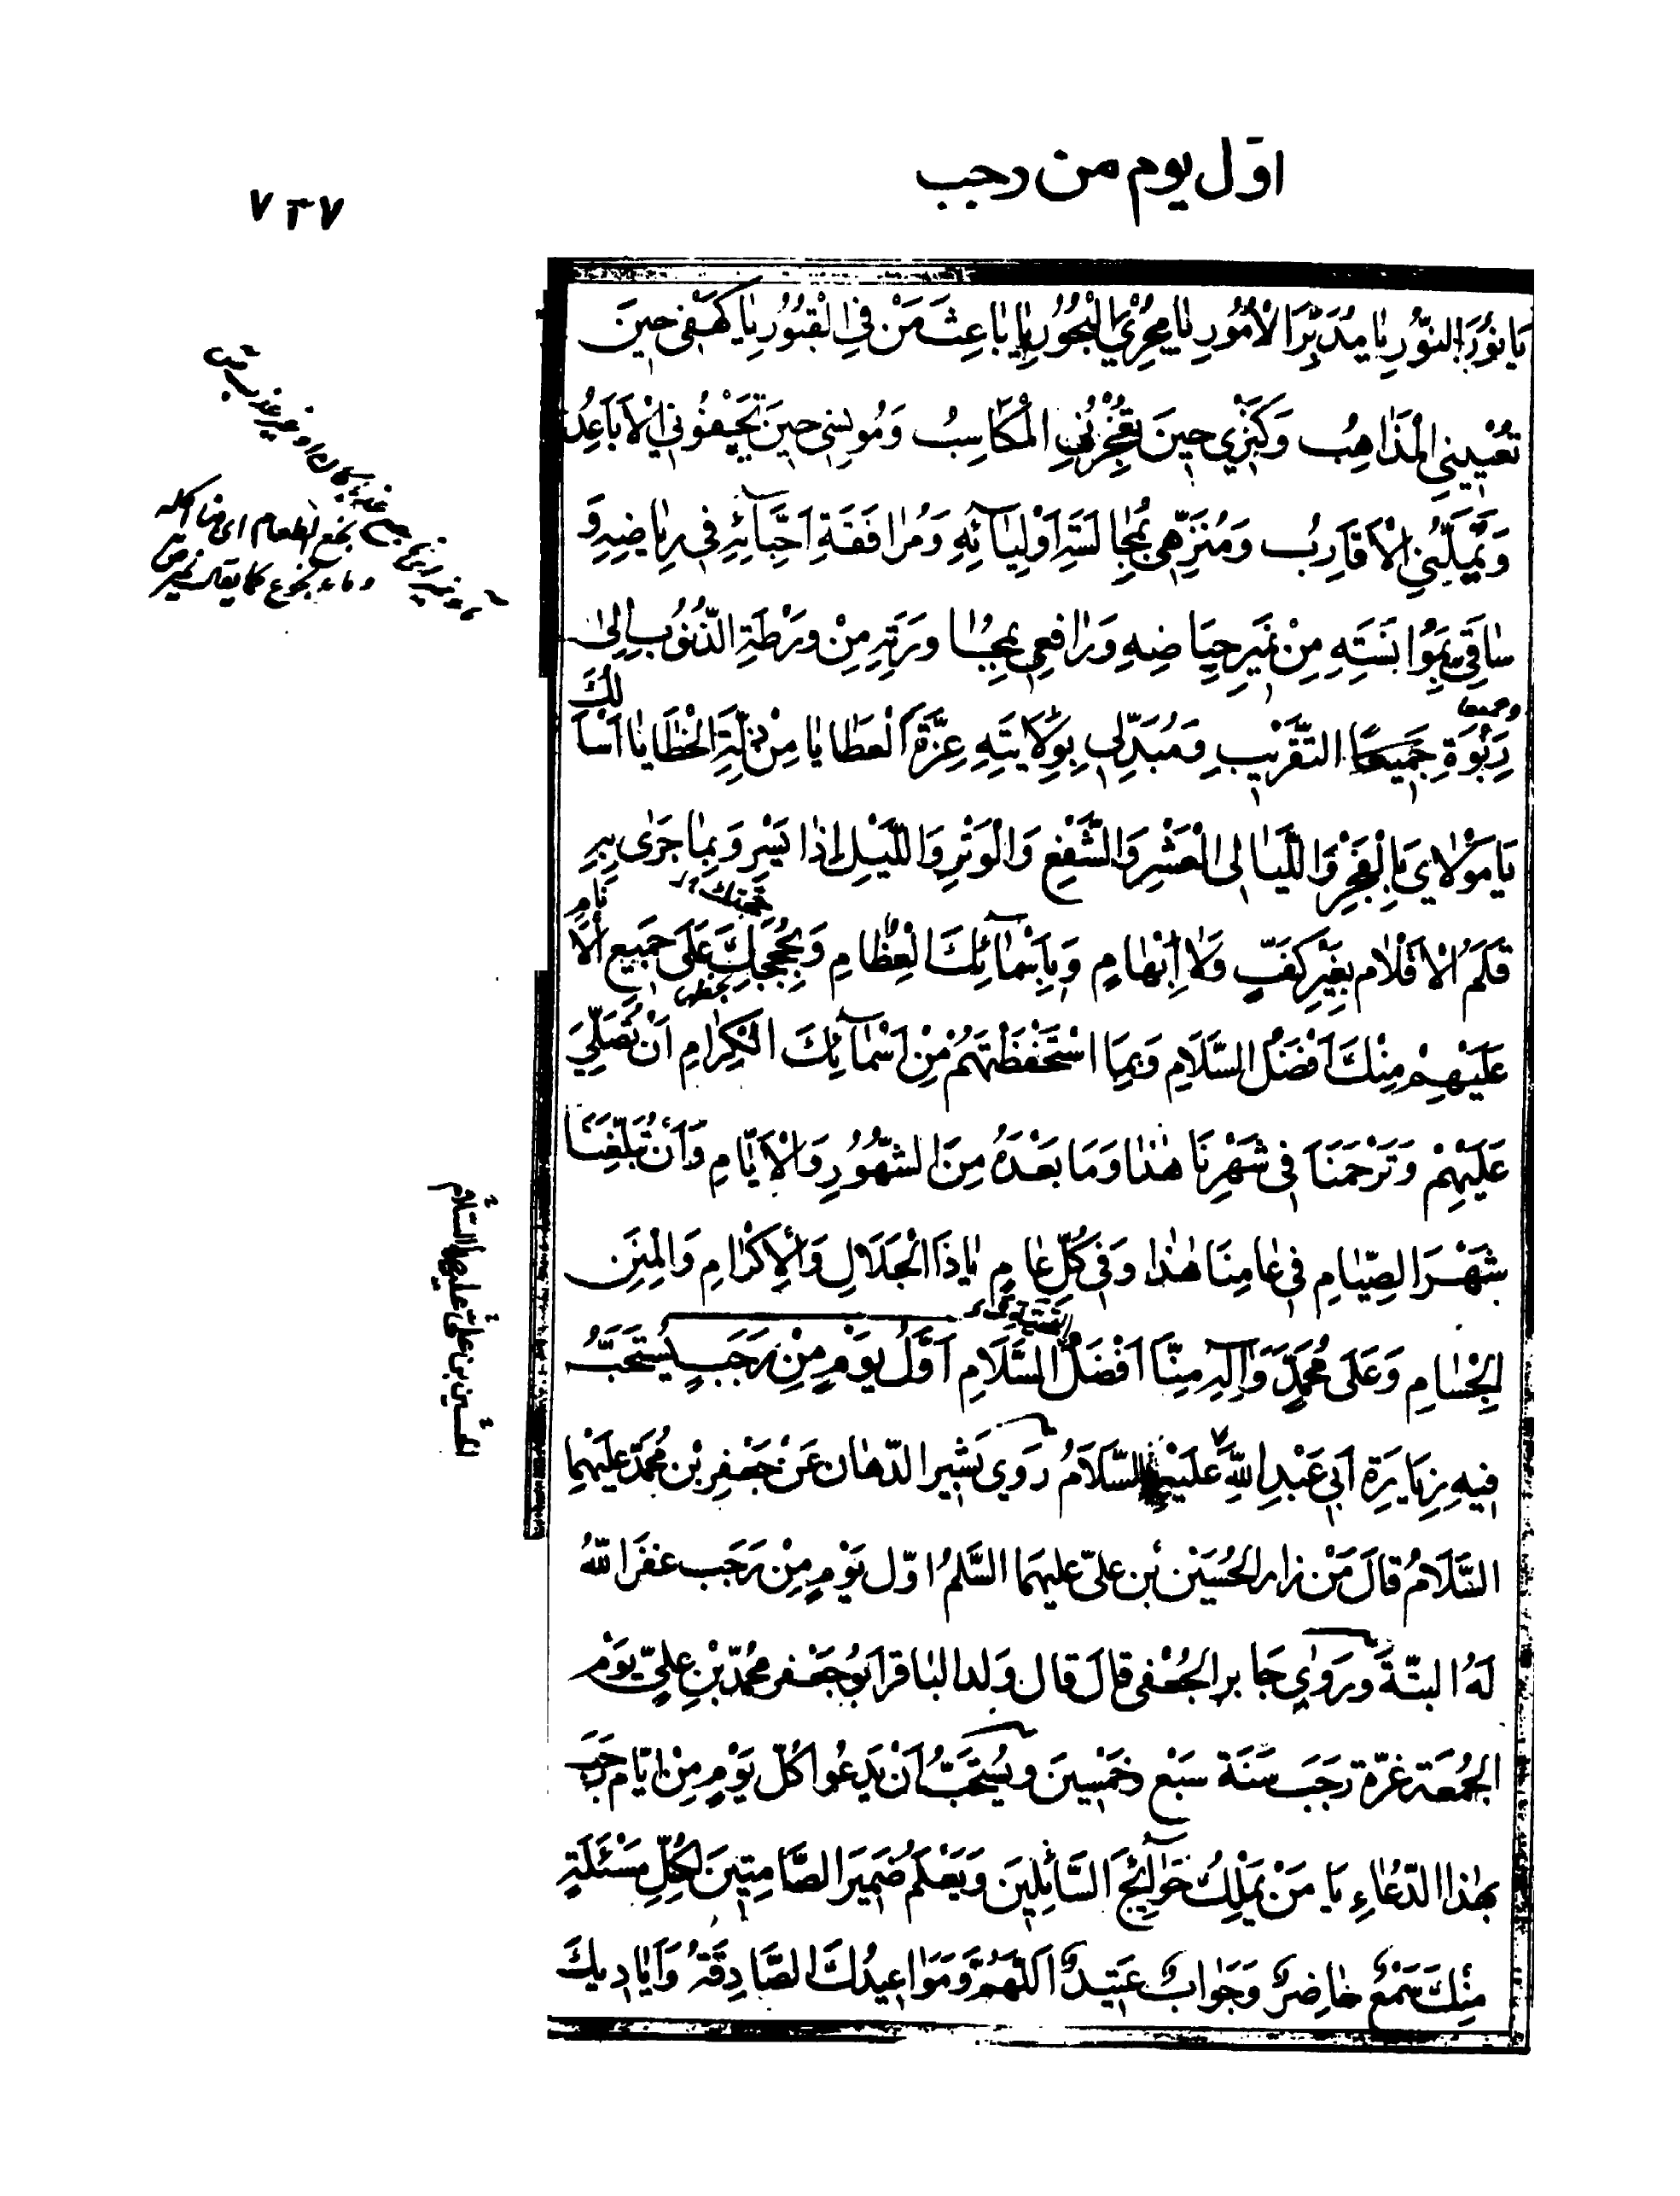 اوّل يوم من رجب
٧٣٧
يَا نُورَ النُّورِ يَا مُدَبِّرَ الْأُمُورِ يَا مُجْرِيَ الْبُحُورِ يَا بَاعِثَ مَنْ فِي الْقُبُورِ يَا كَهْفِي حِينَ
تُعْيِينِي الْمَذَاهِبُ وَكَنْزِي حِينَ تُعْجِزُنِي الْمَكَاسِبُ وَمُونِسِي حِينَ تَجْفُونِي الْأَبَاعِدُ
وَتَمَلُّنِي الْأَقَارِبُ وَمُنَزِّهِي بِمُجَالَسَةِ أَوْلِيَآئِهِ وَمُرَافَقَةِ أَحِبَّآئِهِ فِي رِيَاضِهِ وَ
سَاقِي بِمُؤَانَسَتِهِ مِنْ نَمِيرِ حِيَاضِهِ وَرَافِعِي بِمُجَاوَرَتِهِ مِنْ وَرْطَةِ الذُّنُوبِ إِلَى
رَبْوَةِ التَّقْرِيبِ وَمُبَدِّلِي بِوِلَايَتِهِ عِزَّةَ الْعَطَايَا مِنْ ذِلَّةِ الْخَطَايَا أَسْأَلُكَ
يَا مَوْلَايَ بِالْفَجْرِ وَاللَّيَالِي الْعَشْرِ وَالشَّفْعِ وَالْوَتْرِ وَاللَّيْلِ إِذَا يَسْرِ وَبِمَا جَرَى بِهِ
قَلَمُ الْأَقْلَامِ بِغَيْرِ كَفٍّ وَلَا إِبْهَامٍ وَبِأَسْمَآئِكَ الْعِظَامِ وَبِحُجَجِكَ عَلَى جَمِيعِ الْأَنَامِ
عَلَيْهِمْ مِنْكَ أَفْضَلُ السَّلَامِ وَبِمَا اسْتَحْفَظْتَهُمْ مِنْ أَسْمَآئِكَ الْكِرَامِ أَنْ تُصَلِّيَ
عَلَيْهِمْ وَتَرْحَمَنَا فِي شَهْرِنَا هَذَا وَمَا بَعْدَهُ مِنَ الشُّهُورِ وَالْأَيَّامِ وَأَنْ تُبَلِّغَنَا
شَهْرَ الصِّيَامِ فِي عَامِنَا هَذَا وَفِي كُلِّ عَامٍ يَا ذَا الْجَلَالِ وَالْإِكْرَامِ وَالْمِنَنِ
الْجِسَامِ وَعَلَى مُحَمَّدٍ وَآلِهِ مِنَّا أَفْضَلُ السَّلَامِ أَوَّلُ يَوْمٍ مِنْ رَجَبٍ يُسْتَحَبُّ
فِيهِ زِيَارَةِ أَبِي عَبْدِ اللَّهِ عَلَيْهِ السَّلَامُ رَوَى بَشِير الدّهان عَنْ جَعْفِر بْن مُحَمَّد عَلَيْهِمَا
السَّلَامُ قَالَ مَنْ زار الحُسَيْن بْن عَلِيّ عليهما السَّلمُ اوّل يَوْمٍ مِنْ رَجَب غفَرَ اللّهُ
لَهُ البَتّةَ وَرَوَى جَابر الجُعْفى قالَ قال وَلد الباقر ابُو جَعْفر مُحمّدُ بْنِ عَلِيّ يَوْم
الجُمْعَة غرّة رَجَبَ سَنَة سَبْع وَخَمْسِينَ وَيُسْتَحَبُّ انْ يَدْعُوا كُلّ يَوْمٍ مِنْ ايّام رَجَب
بِهٰذا الدّعَاءِ يَا مَنْ يَمْلِكُ حَوَآئِجَ السَّائِلِينَ وَيَعْلَمُ ضَمِيرَ الصَّامِتِينَ لِكُلِّ مَسْئَلَةٍ
مِنْكَ سَمْعٌ حَاضِرٌ وَجَوَابٌ عَتِيدٌ اَللّهُمَّ وَمَوَاعِيدُكَ الصَّادِقَةُ وَأَيَادِيكَ
الحسين بن علىّ عليهما السّلام